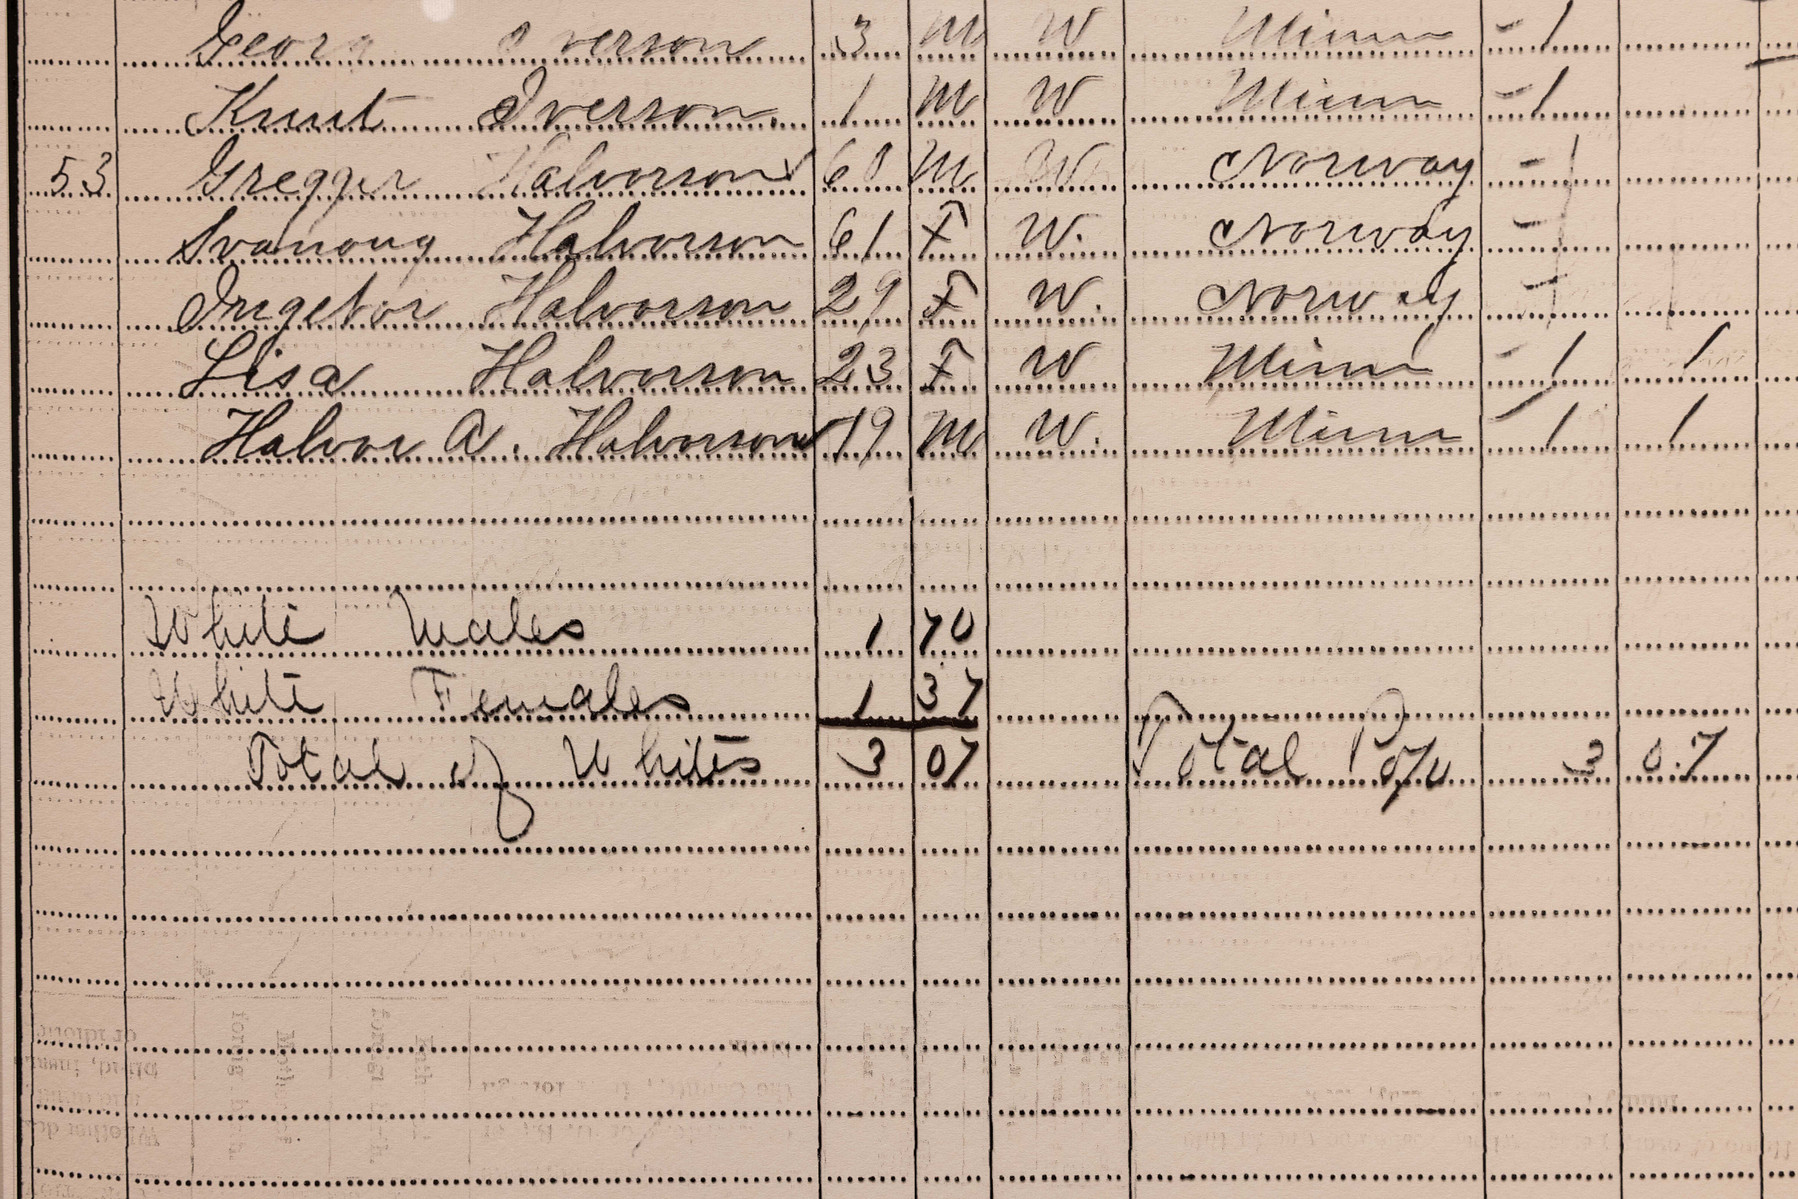 Georg Iverson 3 M W Minn - 1
Knut Iverson. 1 M W Minn - 1
53 Gregger Halvorson 60 M W Norway - 1
Svanoug Halvorson 61 F W. Norway - 1
Ingebor Halvorson 29 F W. Norway - 1
Lisa Halvorson 23 F W Minn - 1 1
Halvor A. Halvorson 19 M W. Minn - 1 1
White Males 1 70
White Females 1 37
Total of Whites 3 07 Total Pop 3 07